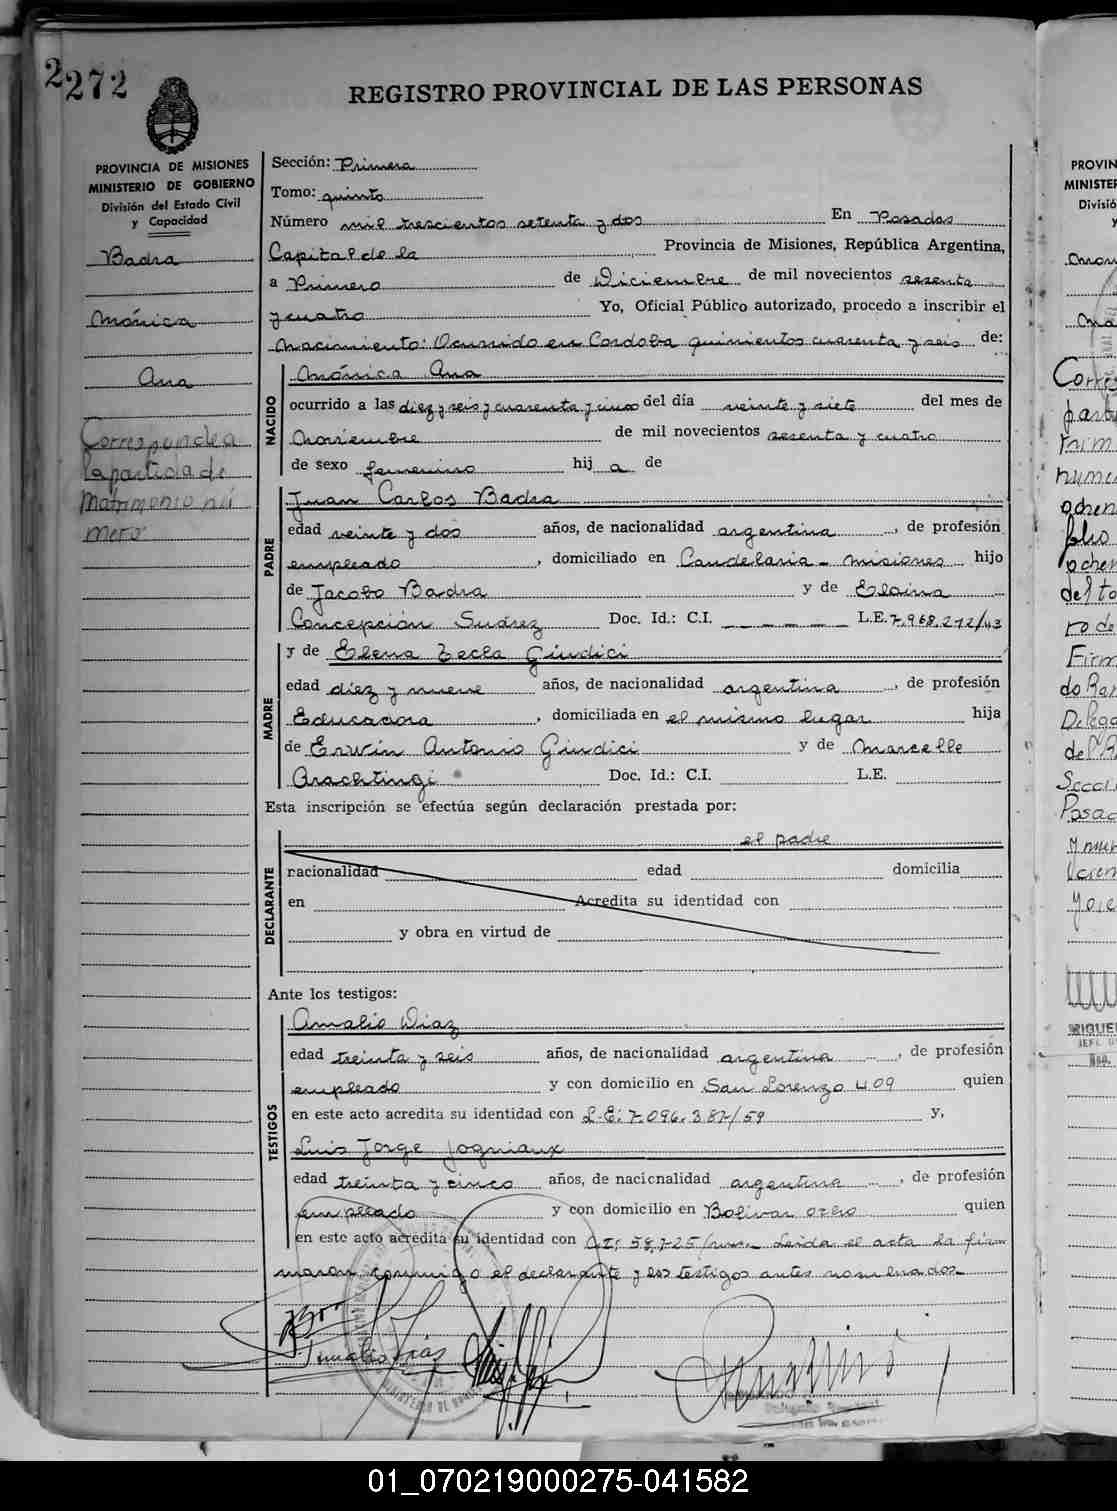 2272
REGISTRO PROVINCIAL DE LAS PERSONAS
PROVINCIA DE MISIONES
MINISTERIO DE GOBIERNO
División del Estado Civil
y Capacidad
Badra
Mónica
Ana
Corresponde a
la partida de
matrimonio nú
mero
Sección: Primera
Tomo: quinto
Número mil trescientos setenta y dos En Posadas
Capital de la Provincia de Misiones, República Argentina,
a Primero de Diciembre de mil novecientos sesenta
y cuatro Yo, Oficial Público autorizado, procedo a inscribir el
nacimiento: Ocurrido en Cordoba quinientos cuarenta y seis de:
NACIDO
Mónica Ana
ocurrido a las diez y seis y cuarenta y cinco del día veinte y siete del mes de
Noviembre de mil novecientos sesenta y cuatro
de sexo femenino hij a de
PADRE
Juan Carlos Badra
edad veinte y dos años, de nacionalidad argentina, de profesión
empleado, domiciliado en Candelaria - misiones hijo
de Jacobo Badra y de Elaina
Concepción Suárez Doc. Id.: C.I. _ _ _ _ _ L.E. 7.968.212/43
MADRE
y de Elena Tecla Giudici
edad diez y nueve años, de nacionalidad argentina, de profesión
Educadora, domiciliada en el mismo lugar hija
de Erwin Antonio Giudici y de Marcelle
Arachtingi Doc. Id.: C.I. L.E.
Esta inscripción se efectúa según declaración prestada por:
DECLARANTE
el padre
nacionalidad edad domicilia
en Acredita su identidad con
y obra en virtud de
Ante los testigos:
TESTIGOS
Amalio Diaz
edad treinta y seis años, de nacionalidad argentina, de profesión
empleado y con domicilio en San Lorenzo 409 quien
en este acto acredita su identidad con L.E: 7.096.387/59 y,
Luis Jorge Jogniaux
edad treinta y cinco años, de nacionalidad argentina, de profesión
empleado y con domicilio en Bolivar quien
en este acto acredita su identidad con CI: 58.725 Leida el acta la fir
maron conmigo el declarante y los testigos antes nombrados
Amalio Díaz
PROVIN
MINISTER
Divisió
y
Corres
parti
prim
numer
ochen
folio
ochen
del to
ro de
Firm
do Ram
Delega
Secci
Posad
MIGUEL
JEFE
01_070219000275-041582